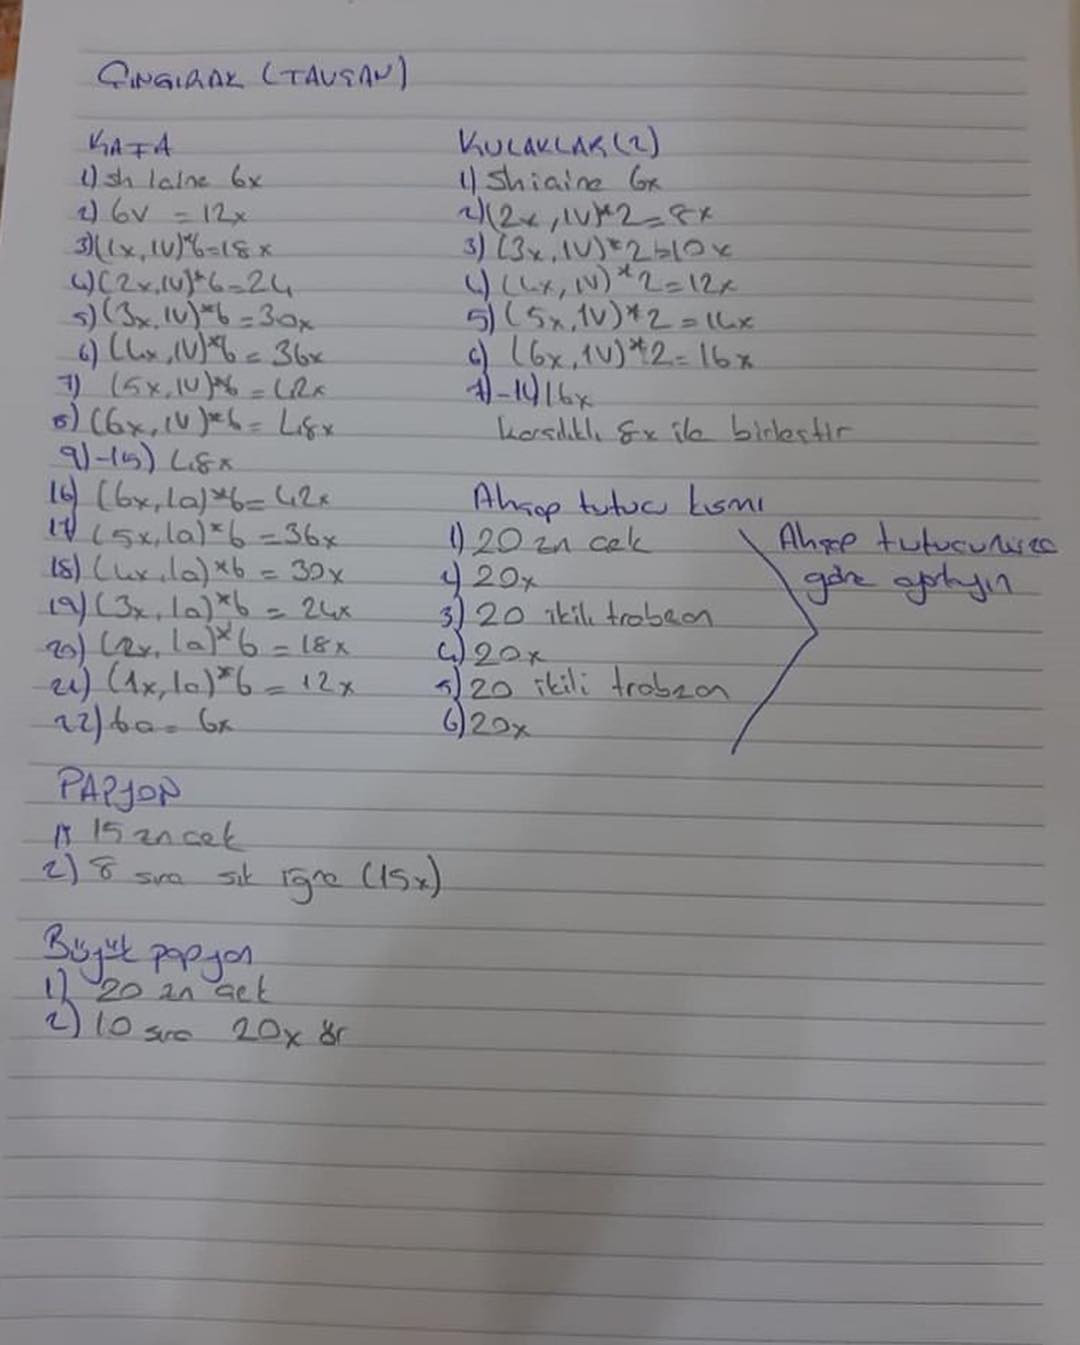 ÇINGIRAK (TAVŞAN)
KAFA
1) sh içine 6x
2) 6V = 12x
3) (1x, 1V)*6=18x
4) (2x, 1V)*6=24
5) (3x, 1V)*6=30x
6) (4x, 1V)*6=36x
7) (5x, 1V)*6=42x
8) (6x, 1V)*6=48x
9)-15) 48x
16) (6x, 1a)*6=42x
17) (5x, 1a)*6=36x
18) (4x, 1a)*6=30x
19) (3x, 1a)*6=24x
20) (2x, 1a)*6=18x
21) (1x, 1a)*6=12x
22) 6a = 6x
KULAKLAR (2)
1) Sh içine 6x
2) (2x, 1V)*2=8x
3) (3x, 1V)*2=10x
4) (4x, 1V)*2=12x
5) (5x, 1V)*2=14x
6) (6x, 1V)*2=16x
7)-14) 16x
karşılıklı 8x ile birleştir
Ahşap tutucu kısmı
1) 20 zn çek
2) 20x
3) 20 ikili trabzan
4) 20x
5) 20 ikili trabzan
6) 20x
Ahşap tutucunuza
göre ayarlayın
PAPYON
1) 15 zn çek
2) 8 sıra sık iğne (15x)
Büyük papyon
1) 20 zn çek
2) 10 sıra 20x ör